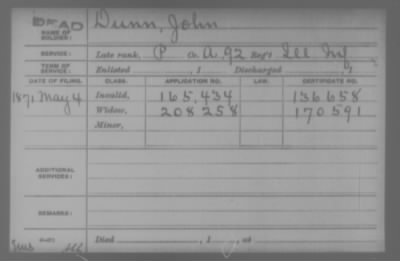 DEAD
Dunn, John
NAME OF SOLDIER:
SERVICE: Late rank, P Co. A, 92 Reg't Ill Inf
TERM OF SERVICE: Enlisted , 1 Discharged , 1
DATE OF FILING. CLASS. APPLICATION NO. LAW. CERTIFICATE NO.
1871 May 4 Invalid, 165,434 136658
Widow, 208258 170591
Minor,
ADDITIONAL SERVICES:
REMARKS:
Died , 1 , at